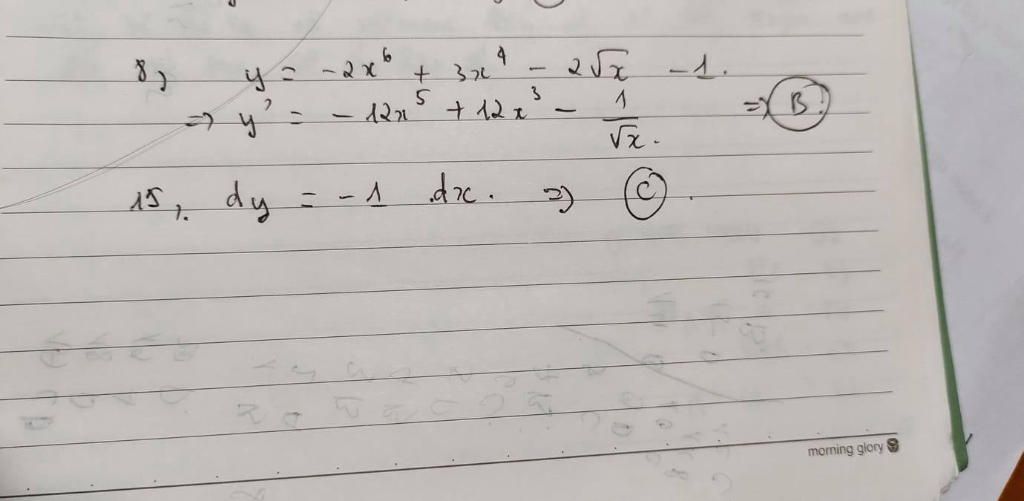 8, y = -2x⁶ + 3x⁴ - 2√x - 1.
⇒ y' = -12x⁵ + 12x³ - 1/√x. ⇒ B.
15, dy = -1 .dx. ⇒ C.
morning glory